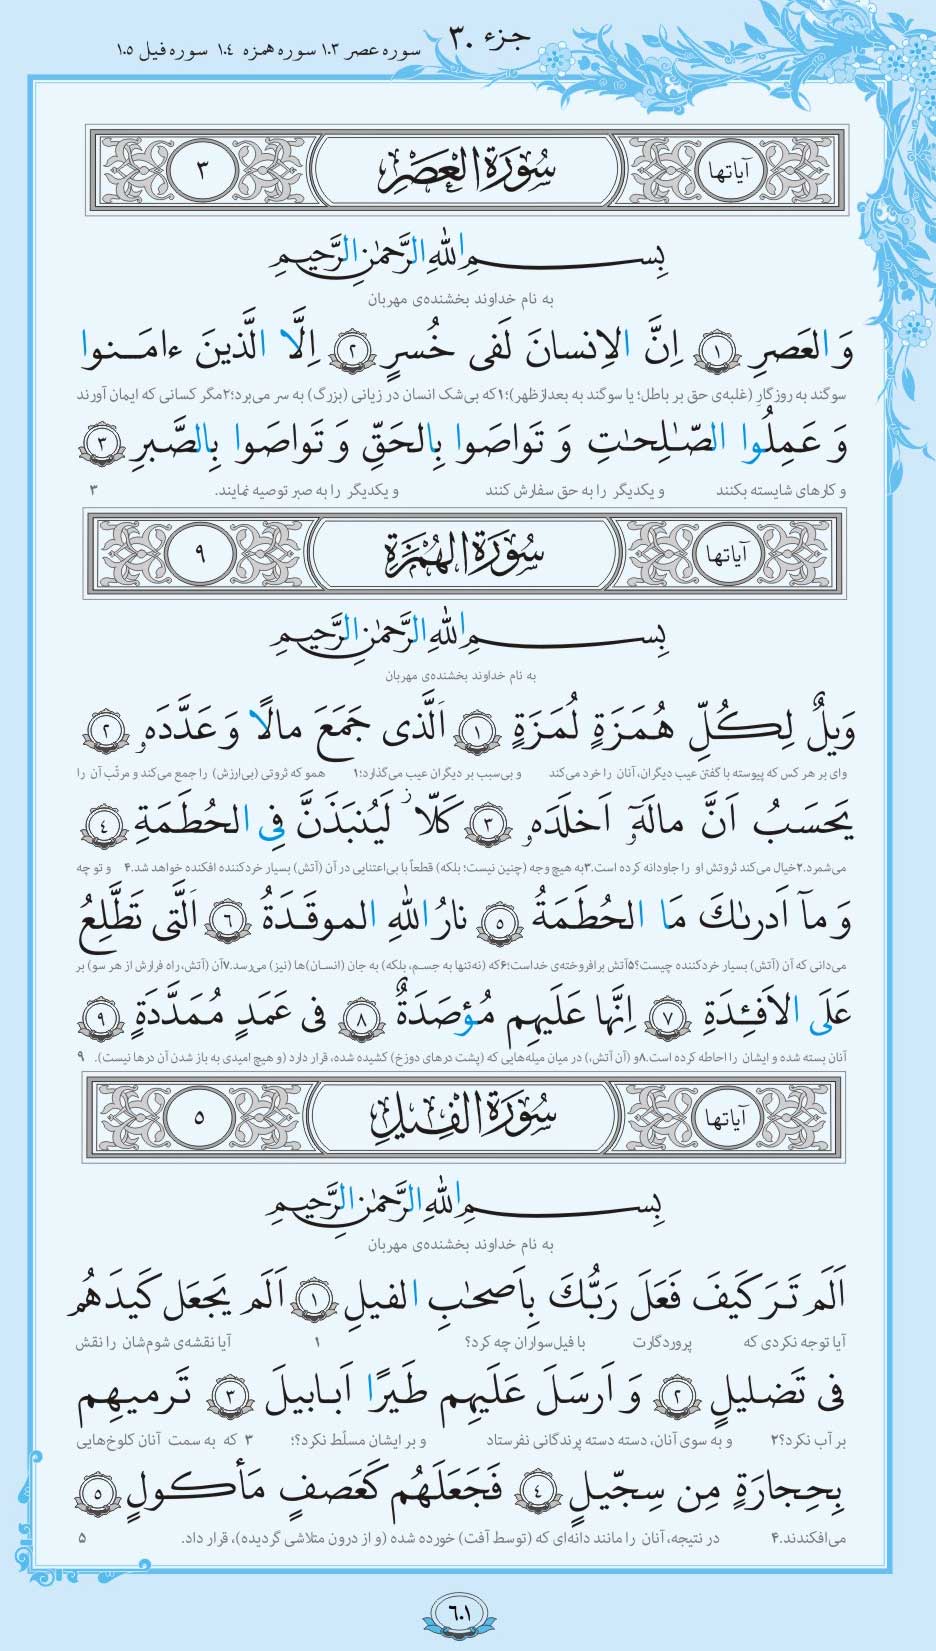 جزء ۳۰ سوره عصر ۱۰۳ سوره همزه ۱۰۴ سوره فیل ۱۰۵
آیاتها سُورَةُ العَصرِ ۳
بِسمِ اللهِ الرَّحمٰنِ الرَّحیمِ
به نام خداوند بخشنده‌ی مهربان
وَ العَصرِ ﴿۱﴾ اِنَّ الاِنسانَ لَفی خُسرٍ ﴿۲﴾ اِلَّا الَّذینَ ءامَنوا
سوگند به روزگار (غلبه‌ی حق بر باطل؛ یا سوگند به بعدازظهر)؛۱ که بی‌شک انسان در زیانی (بزرگ) به سر می‌برد؛۲ مگر کسانی که ایمان آورند
وَ عَمِلُوا الصّـٰلِحـٰتِ وَ تَواصَوا بِالحَقِّ وَ تَواصَوا بِالصَّبرِ ﴿۳﴾
و کارهای شایسته بکنند و یکدیگر را به حق سفارش کنند و یکدیگر را به صبر توصیه نمایند. ۳
آیاتها سُورَةُ الهُمَزَةِ ۹
بِسمِ اللهِ الرَّحمٰنِ الرَّحیمِ
به نام خداوند بخشنده‌ی مهربان
وَیلٌ لِکُلِّ هُمَزَةٍ لُمَزَةٍ ﴿۱﴾ اَلَّذی جَمَعَ مالًا وَ عَدَّدَه‌و ﴿۲﴾
وای بر هر کس که پیوسته با گفتن عیب دیگران، آنان را خرد می‌کند و بی‌سبب بر دیگران عیب می‌گذارد؛۱ همو که ثروتی (بی‌ارزش) را جمع می‌کند و مرتّب آن را
یَحسَبُ اَنَّ مالَه‌ۤو اَخلَدَه‌و ﴿۳﴾ کَلّا ز لَیُنبَذَنَّ فِی الحُطَمَةِ ﴿۴﴾
می‌شمرد.۲ خیال می‌کند ثروتش او را جاودانه کرده است.۳ به هیچ وجه (چنین نیست؛ بلکه) قطعاً با بی‌اعتنایی در آن (آتش) بسیار خردکننده افکنده خواهد شد.۴ و تو چه
وَ ماۤ اَدرىٰکَ مَا الحُطَمَةُ ﴿۵﴾ نارُ اللهِ الموقَدَةُ ﴿۶﴾ اَلَّتی تَطَّلِعُ
می‌دانی که آن (آتش) بسیار خردکننده چیست؟۵ آتش برافروخته‌ی خداست؛۶ که (نه‌تنها به جسم، بلکه) به جان (انسان‌ها) (نیز) می‌رسد.۷ آن (آتش، راه فرارش از هر سو) بر
عَلَی الاَفـِٔدَةِ ﴿۷﴾ اِنَّها عَلَیهِم مُؤصَدَةٌ ﴿۸﴾ فی عَمَدٍ مُمَدَّدَةٍ ﴿۹﴾
آنان بسته شده و ایشان را احاطه کرده است.۸ و (آن آتش،) در میان میله‌هایی که (پشت درهای دوزخ) کشیده شده، قرار دارد (و هیچ امیدی به باز شدن آن درها نیست). ۹
آیاتها سُورَةُ الفِیلِ ۵
بِسمِ اللهِ الرَّحمٰنِ الرَّحیمِ
به نام خداوند بخشنده‌ی مهربان
اَلَم تَرَ کَیفَ فَعَلَ رَبُّکَ بِاَصحـٰبِ الفیلِ ﴿۱﴾ اَلَم یَجعَل کَیدَهُم
آیا توجه نکردی که پروردگارت با فیل‌سواران چه کرد؟ ۱ آیا نقشه‌ی شوم‌شان را نقش
فی تَضلیلٍ ﴿۲﴾ وَ اَرسَلَ عَلَیهِم طَیرًا اَبابیلَ ﴿۳﴾ تَرمیهِم
بر آب نکرد؟۲ و به سوی آنان، دسته دسته پرندگانی نفرستاد و بر ایشان مسلّط نکرد؟؛ ۳ که به سمت آنان کلوخ‌هایی
بِحِجارَةٍ مِن سِجّیلٍ ﴿۴﴾ فَجَعَلَهُم کَعَصفٍ مَأکولٍ ﴿۵﴾
می‌افکندند.۴ در نتیجه، آنان را مانند دانه‌ای که (توسط آفت) خورده شده (و از درون متلاشی گردیده)، قرار داد. ۵
۶۰۱